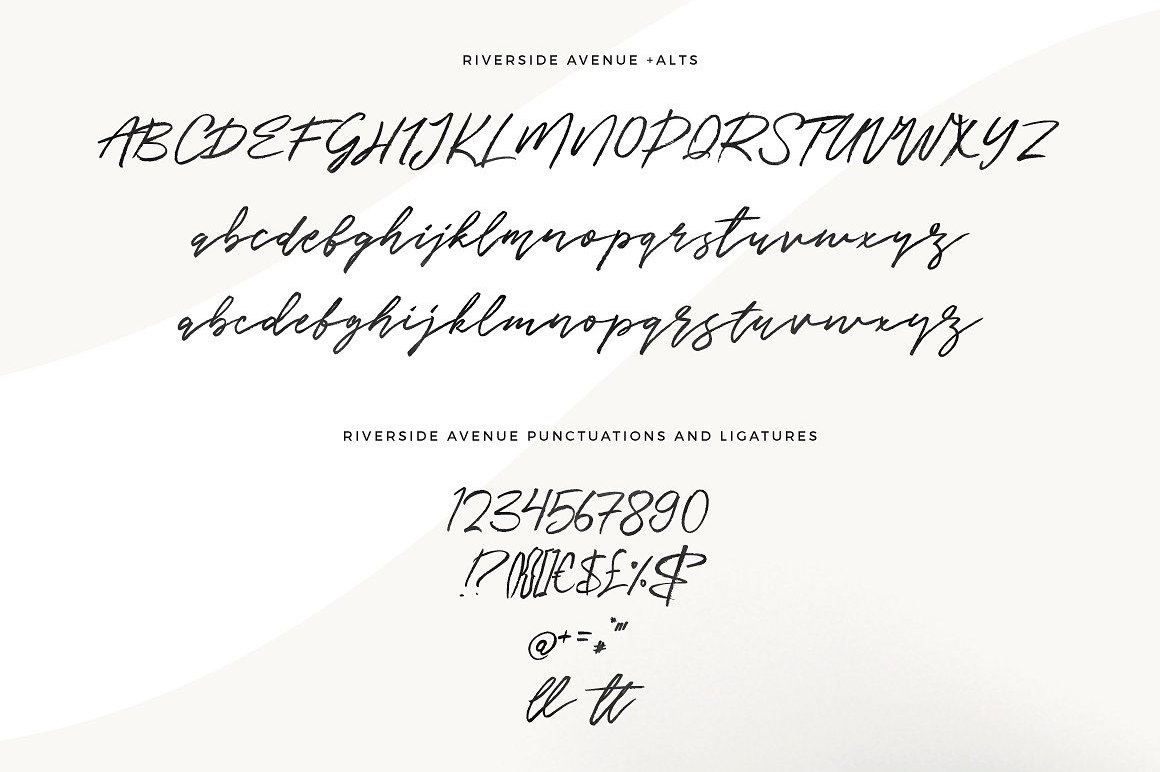 RIVERSIDE AVENUE +ALTS
ABCDEFGHIJKLMNOPQRSTUVWXYZ
abcdefghijklmnopqrstuvwxyz
abcdefghijklmnopqrstuvwxyz
RIVERSIDE AVENUE PUNCTUATIONS AND LIGATURES
1234567890
!?(){}[]€$£%$
@+=#*"'
ll tt